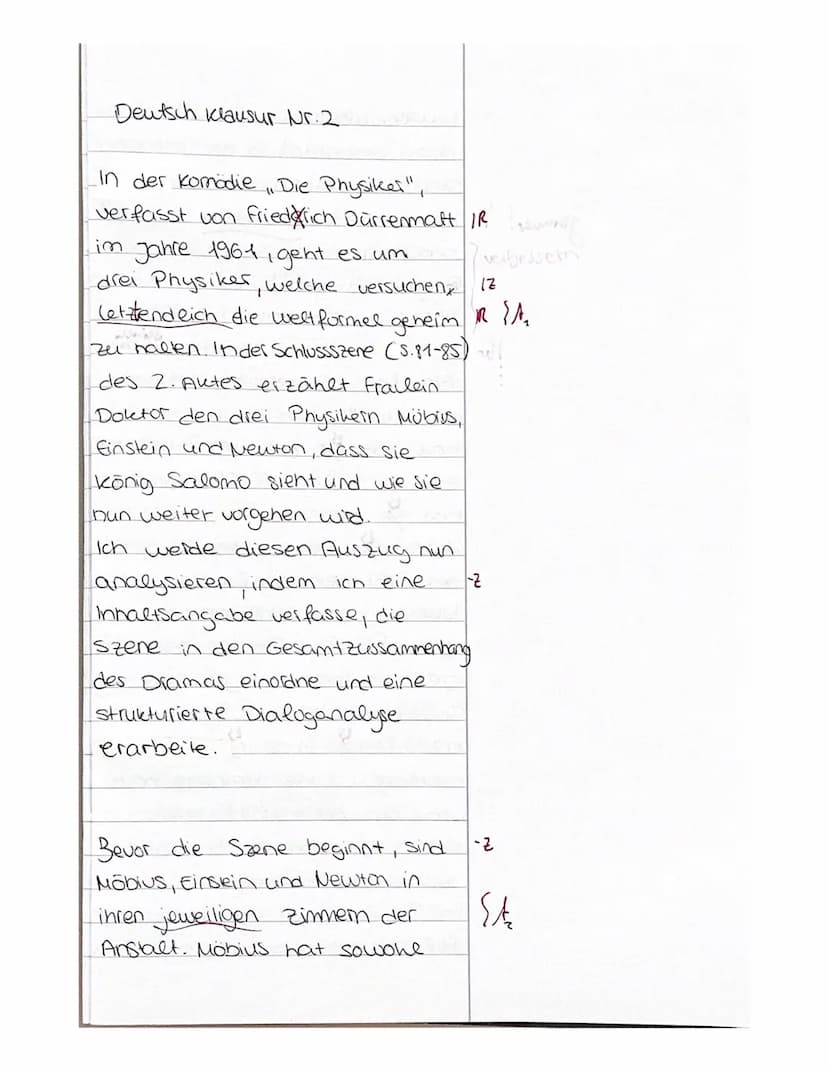 Deutsch Klausur Nr. 2
In der Komödie „Die Physiker",
verfasst von Friedrich Dürrenmatt IR
im Jahre 1961, geht es um
drei Physiker, welche versuchen, IZ
letztendlich die Weltformel geheim R
zu halten. In der Schlussszene (S.81-85)
des 2. Aktes erzählt Fräulein
Doktor den drei Physikern Möbius,
Einstein und Newton, dass sie
König Salomo sieht und wie sie
nun weiter vorgehen wird.
Ich werde diesen Auszug nun
analysieren, indem ich eine -Z
Inhaltsangabe verfasse, die
Szene in den Gesamtzussammenhang
des Dramas einordne und eine
strukturierte Dialoganalyse
erarbeite.
Bevor die Szene beginnt, sind -Z
Möbius, Einsein und Newton in
ihren jeweiligen Zimmern der
Anstalt. Möbius hat sowohl